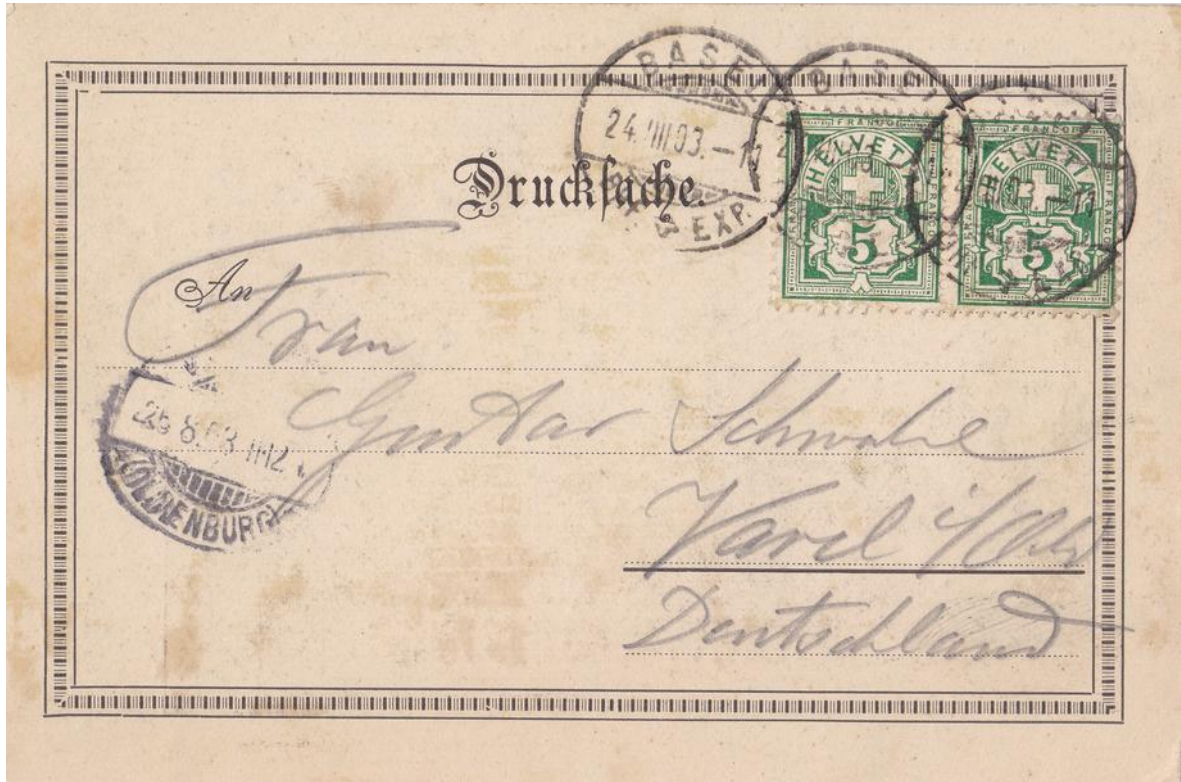 BASEL
24.VIII.03.-1
EXP.
BASEL
FRANCO
HELVETIA
5
FRANCO
HELVETIA
5
Drucksache.
An
Frau
Gustav Schwabe
Varel i/Old
Deutschland
25.8.03 11-12
(OLDENBURG)